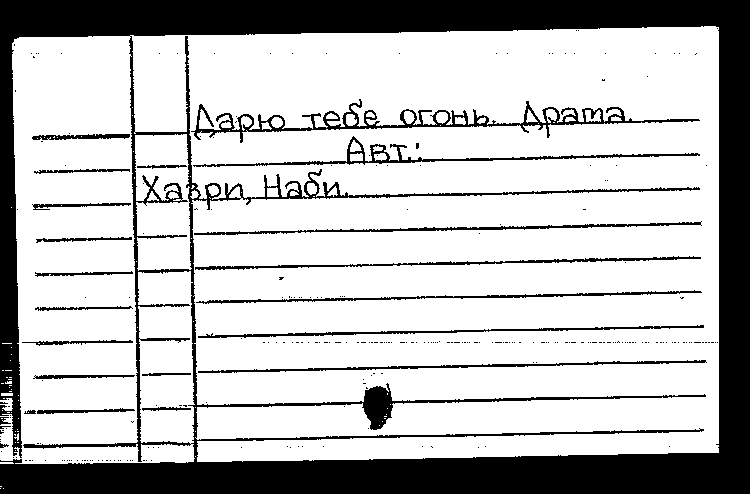 Дарю тебе огонь. Драма.
Авт.:
Хазри, Наби.